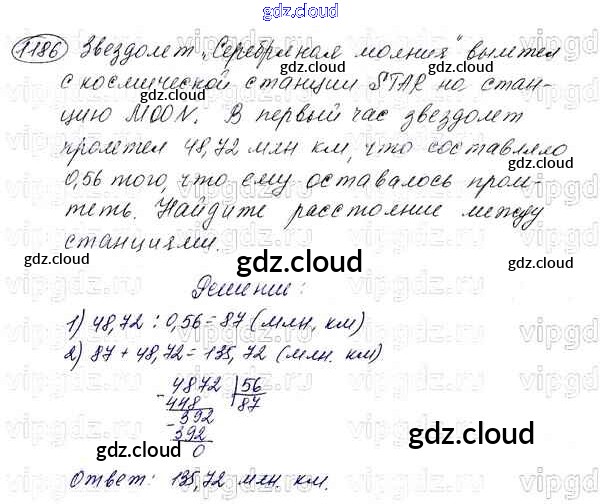 gdz.cloud
1186 Звездолет „Серебряная молния" вылетел
с космической станции STAR на стан-
цию MOON. В первый час звездолет
пролетел 48,72 млн км, что составляло
0,56 того, что ему оставалось проле-
теть. Найдите расстояние между
станциями.
gdz.cloud
gdz.cloud
gdz.cloud
Решение:
1) 48,72 : 0,56 = 87 (млн. км)
2) 87 + 48,72 = 135,72 (млн. км)
- 4872 | 56
448 87
- 392
392
0
gdz.cloud
gdz.cloud
gdz.cloud
Ответ: 135,72 млн. км.